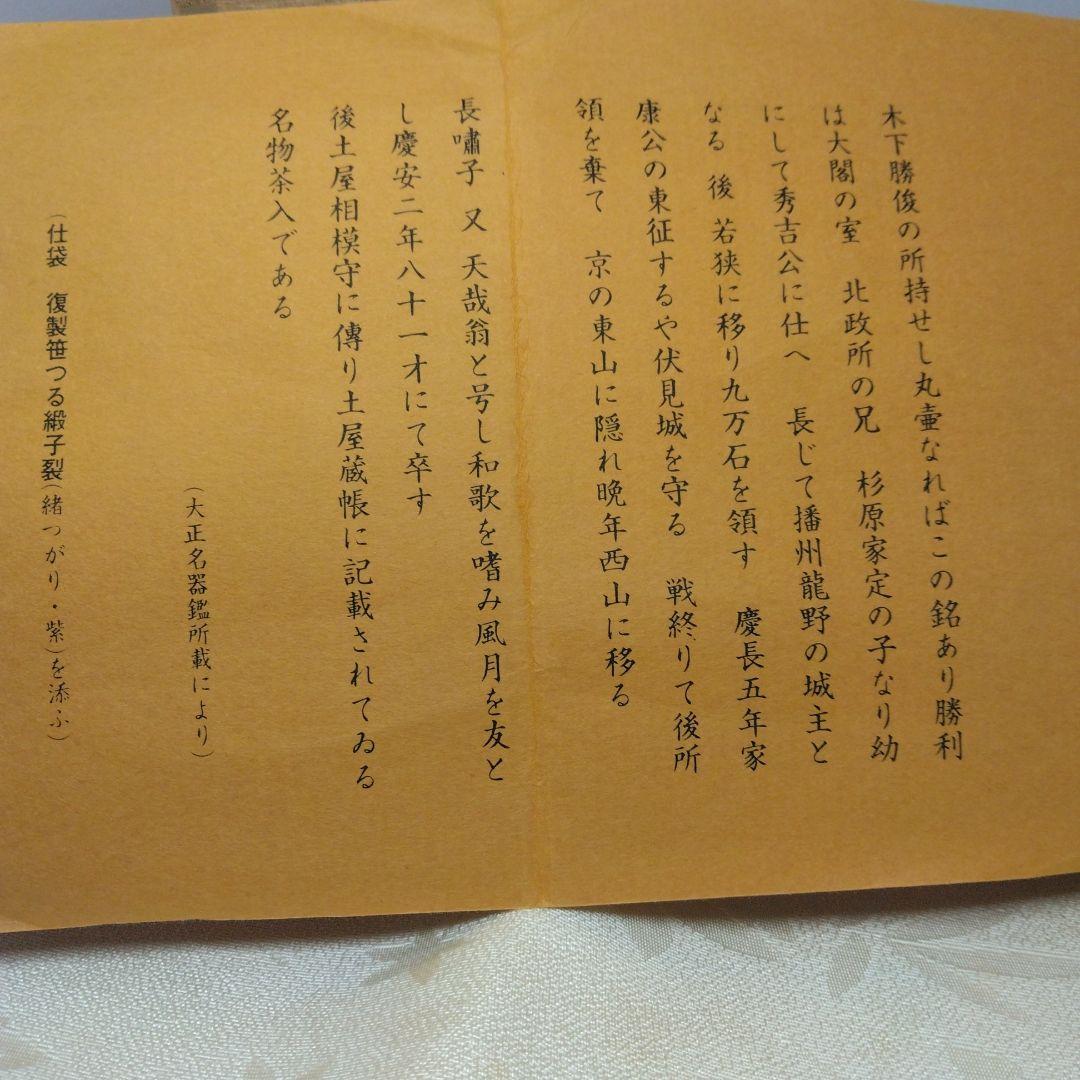 木下勝俊の所持せし丸壷なればこの銘あり勝利
は大閤の室　北政所の兄　杉原家定の子なり幼
にして秀吉公に仕へ　長じて播州龍野の城主と
なる　後　若狭に移り九万石を領す　慶長五年家
康公の東征するや伏見城を守る　戦終りて後所
領を棄て　京の東山に隠れ晩年西山に移る
長嘯子　又　天哉翁と号し和歌を嗜み風月を友と
し慶安二年八十一才にて卒す
後土屋相模守に傳り土屋蔵帳に記載されてゐる
名物茶入である
（大正名器鑑所載により）
（仕袋　復製笹つる緞子裂（緒つがり・紫）を添ふ）